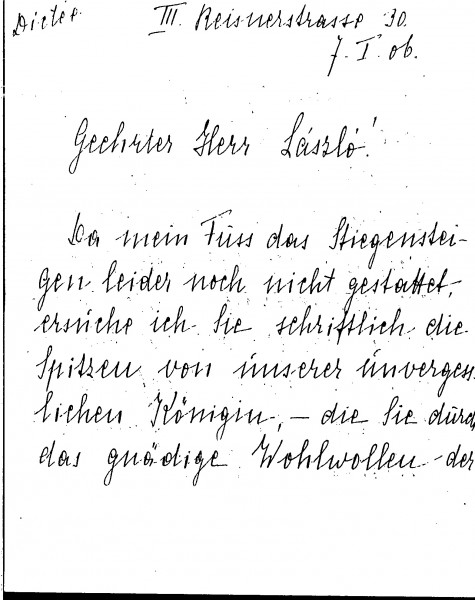 Dictée
III. Reisnerstrasse 30.
7. I. 06.
Geehrter Herr László!
Da mein Fuss das Stiegenstei-
gen leider noch nicht gestattet,
ersuche ich Sie schriftlich die
Spitzen von unserer unverges
lichen Königin, – die Sie durch
das gnädige Wohlwollen der